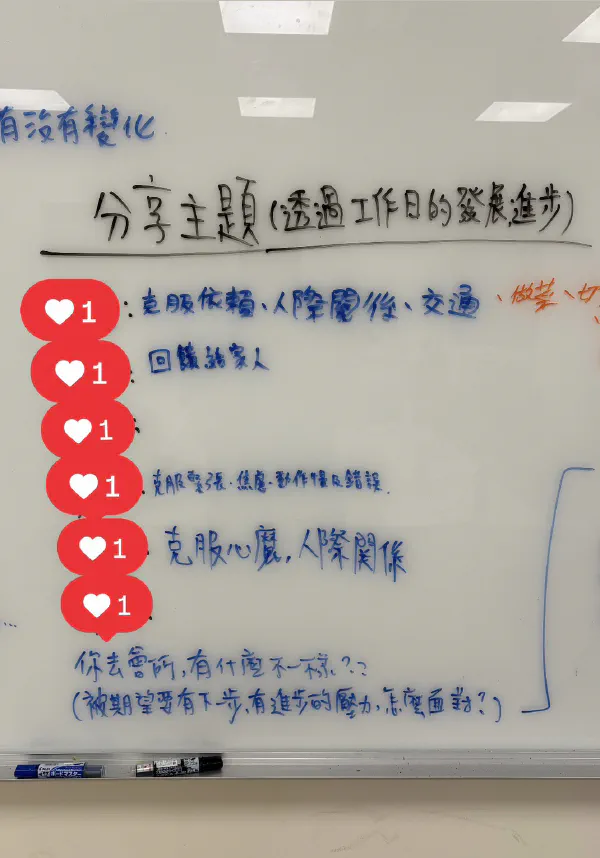 有沒有變化
分享主題(透過工作日的發展進步)
1:克服依賴、人際關係、交通、做菜、
1:回饋給家人
1:
1:克服緊張.焦慮.動作慢及錯誤.
1 克服心魔,人際關係
1
你去會所,有什麼不一樣???
(被期望要有下一步,有進步的壓力,怎麼面對?)